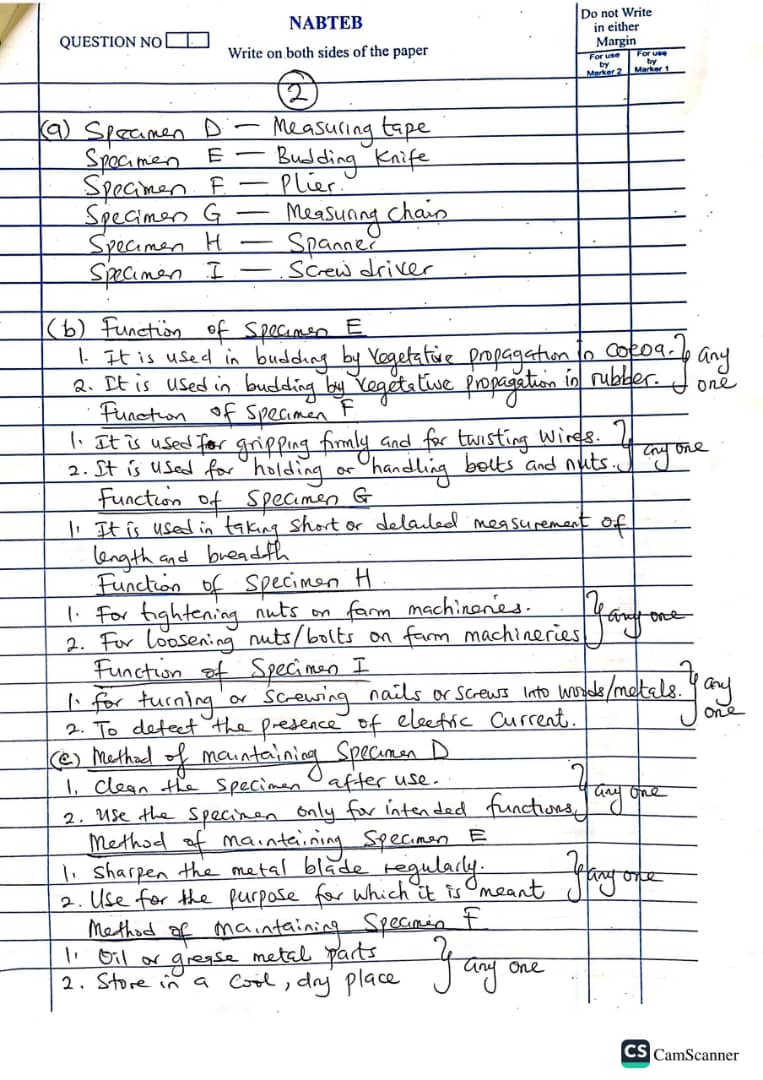 NABTEB
QUESTION NO
Write on both sides of the paper
Do not Write
in either
Margin
For use
by
Marker 2
For use
by
Marker 1
2
(a) Specimen D – Measuring tape
Specimen E – Budding Knife
Specimen F – Plier.
Specimen G – Measuring chain
Specimen H – Spanner
Specimen I – Screw driver
(b) Function of Specimen E
1. It is used in budding by Vegetative propagation in cocoa. } any
2. It is used in budding by Vegetative propagation in rubber. } one
Function of Specimen F
1. It is used for gripping firmly and for twisting wires. }
2. It is used for holding or handling bolts and nuts. } any one
Function of Specimen G
1. It is used in taking short or detailed measurement of
length and breadth
Function of Specimen H.
1. For tightening nuts on farm machineries. }
2. For loosening nuts/bolts on farm machineries } any one
Function of Specimen I
1. for turning or screwing nails or screws into woods/metals. } any
2. To detect the presence of electric current. } one
(c) Method of maintaining Specimen D
1. Clean the specimen after use. }
2. use the specimen only for intended functions } any one
Method of maintaining Specimen E
1. Sharpen the metal blade regularly. }
2. Use for the purpose for which it is meant } any one
Method of maintaining Specimen F
1. Oil or grease metal parts }
2. Store in a cool, dry place } any one
CS CamScanner